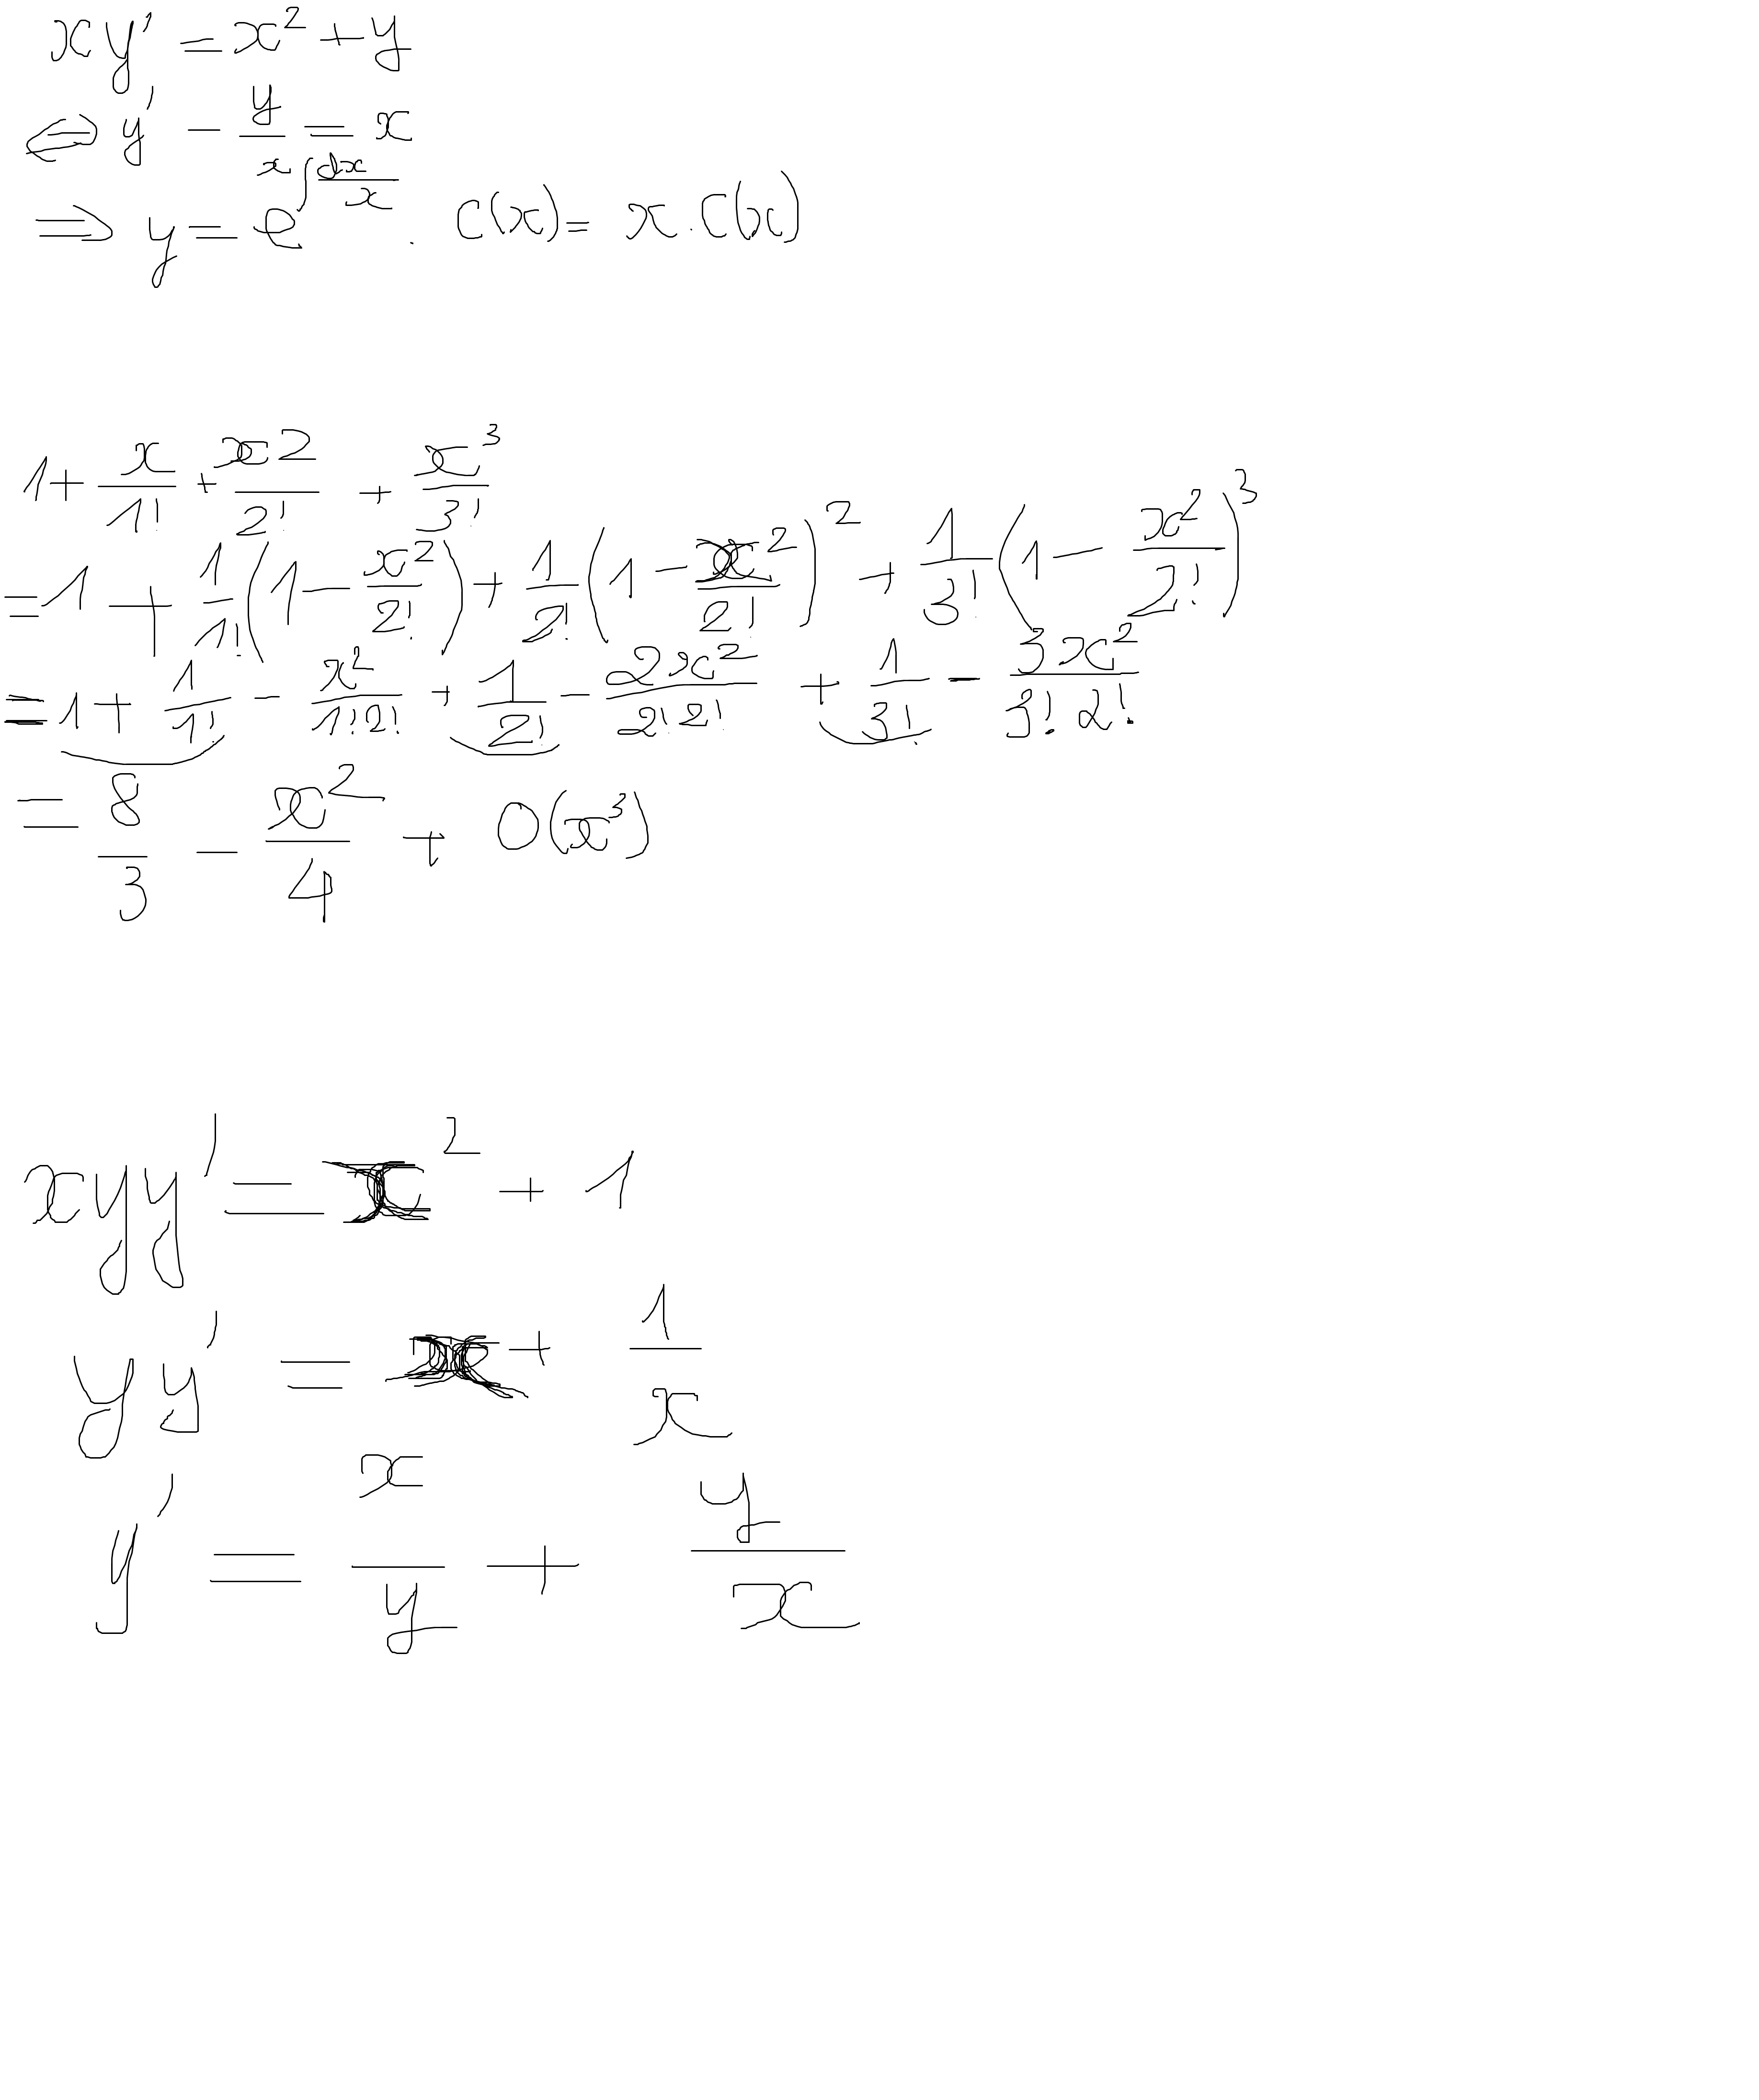 xy' = x² + y
⇔ y' - y/x = x
⇒ y = e^(∫dx/x) . C(x) = x . C(x)
1 + x/1! + x2/2! + x³/3!
= 1 + 1/1! (1 - x²/2!) + 1/2! (1 - x²/2!)² + 1/3! (1 - x²/2!)³
= 1 + 1/1! - x²/1!2! + 1/2! - 2x²/2!2! + 1/3! - 3x²/3!2!
= 8/3 - x²/4 + O(x³)
xyy' = x² + 1
yy' = x + 1/x
y' = x/y + y/x